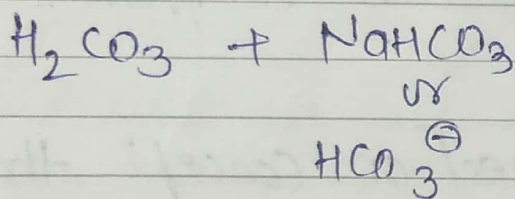 H₂CO₃ + NaHCO₃
or
HCO₃⊖